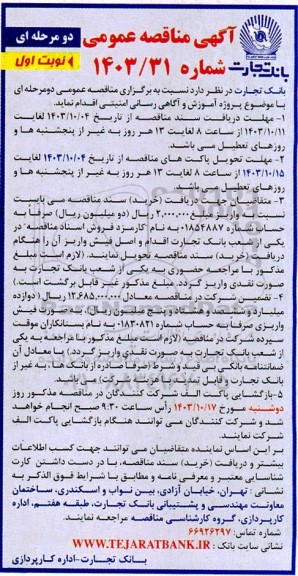 دو مرحله ای
آگهی مناقصه عمومی
نوبت اول
شماره ۱۴۰۳/۳۱
بانک تجارت
بانک تجارت در نظر دارد نسبت به برگزاری مناقصه عمومی دومرحله ای
با موضوع پروژه آموزش و آگاهی رسانی امنیتی اقدام نماید.
۱- مهلت دریافت سند مناقصه از تاریخ ۱۴۰۳/۱۰/۰۴ لغایت
۱۴۰۳/۱۰/۱۱ از ساعت ۸ لغایت ۱۳ هر روز به غیر از پنجشنبه ها و
روزهای تعطیل می باشد.
۲- مهلت تحویل پاکت های مناقصه از تاریخ ۱۴۰۳/۱۰/۰۴ لغایت
۱۴۰۳/۱۰/۱۵ از ساعت ۸ لغایت ۱۳ هر روز به غیر از پنجشنبه ها و
روزهای تعطیل می باشد.
۳- متقاضیان جهت دریافت (خرید) سند مناقصه می بایست
نسبت به واریز مبلغ ۲,۰۰۰,۰۰۰ ریال (دو میلیون ریال) صرفاً به
حساب شماره ۰۱۸۵۴۸۸۷ به نام کارمزد فروش اسناد مناقصه در
یکی از شعب بانک تجارت اقدام و اصل فیش واریز آن را هنگام
دریافت (خرید) سند مناقصه تحویل نمایند. (لازم است مبلغ
مذکور با مراجعه حضوری به یکی از شعب بانک تجارت به
صورت نقدی واریز گردد. مبلغ مذکور غیر قابل برگشت است.)
۴- تضمین شرکت در مناقصه معادل ۱۲,۶۸۵,۰۰۰,۰۰۰ ریال (دوازده
میلیارد و ششصد و هشتاد و پنج میلیون ریال) به صورت فیش
واریزی صرفاً به حساب شماره ۰۱۸۳۰۸۲۱ به نام بستانکاران موقت
سپرده شرکت در مناقصه (لازم است مبلغ مذکور با مراجعه به یکی
از شعب بانک تجارت به صورت نقدی واریز گردد.) یا معادل آن
ضمانتنامه بانکی بی قید و شرط (صرفاً صادره از بانک ها به غیر از
بانک تجارت) قابل تمدید
۵- بازگشایی پاکت الف شرکت کنندگان در مناقصه مذکور روز
دوشنبه مورخ ۱۴۰۳/۱۰/۱۷ رأس ساعت ۹:۳۰ صبح انجام خواهد
شد و شرکت کنندگان می توانند هنگام بازگشایی پاکت الف
شرکت نمایند.
بر این اساس نماینده متقاضیان می توانند جهت کسب اطلاعات
بیشتر و دریافت (خرید) سند مناقصه، با در دست داشتن کارت
شناسایی معتبر و معرفی نامه و مطابق با شرایط فوق الذکر به
نشانی : تهران، خیابان آزادی، بین نواب و اسکندری، ساختمان
معاونت مهندسی و پشتیبانی بانک تجارت، طبقه هفتم، اداره
کارپردازی، گروه کارشناسی مناقصه مراجعه نمایند.
شماره تماس: ۶۶۹۲۶۲۹۷
نشانی سایت بانک : WWW.TEJARATBANK.IR
بانک تجارت-اداره کارپردازی